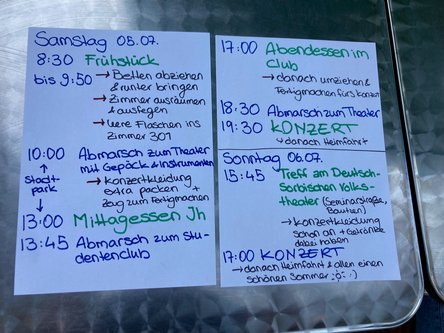 Samstag 05.07.
8:30 Frühstück
bis 9:50 → Betten abziehen
& runter bringen
→ Zimmer ausräumen
& ausfegen
→ leere Flaschen ins
Zimmer 301
10:00 Abmarsch zum Theater
mit Gepäck & Instrumenten
↑
Stadt-
park
↓
→ Konzertkleidung
extra packen +
Zeug zum Fertigmachen
13:00 Mittagessen Jh
13:45 Abmarsch zum Stu-
dentenclub
17:00 Abendessen im
Club
→ danach umziehen &
Fertigmachen fürs Konzert
18:30 Abmarsch zum Theater
19:30 KONZERT
↳ danach Heimfahrt
Sonntag 06.07.
15:45 Treff am Deutsch-
Sorbischen Volks-
theater (Seminarstraße,
Bautzen)
→ Konzertkleidung
schon an + Getränke
dabei haben
17:00 KONZERT
→ danach Heimfahrt & allen einen
schönen Sommer :)